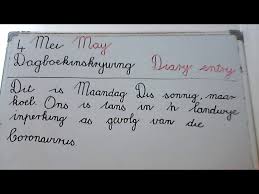 4 Mei May
Dagboekinskrywing Diary entry
Dit is Maandag Dis sonnig, maar
koel. Ons is tans in 'n landwye
inperking as gevolg van die
Coronavirus.